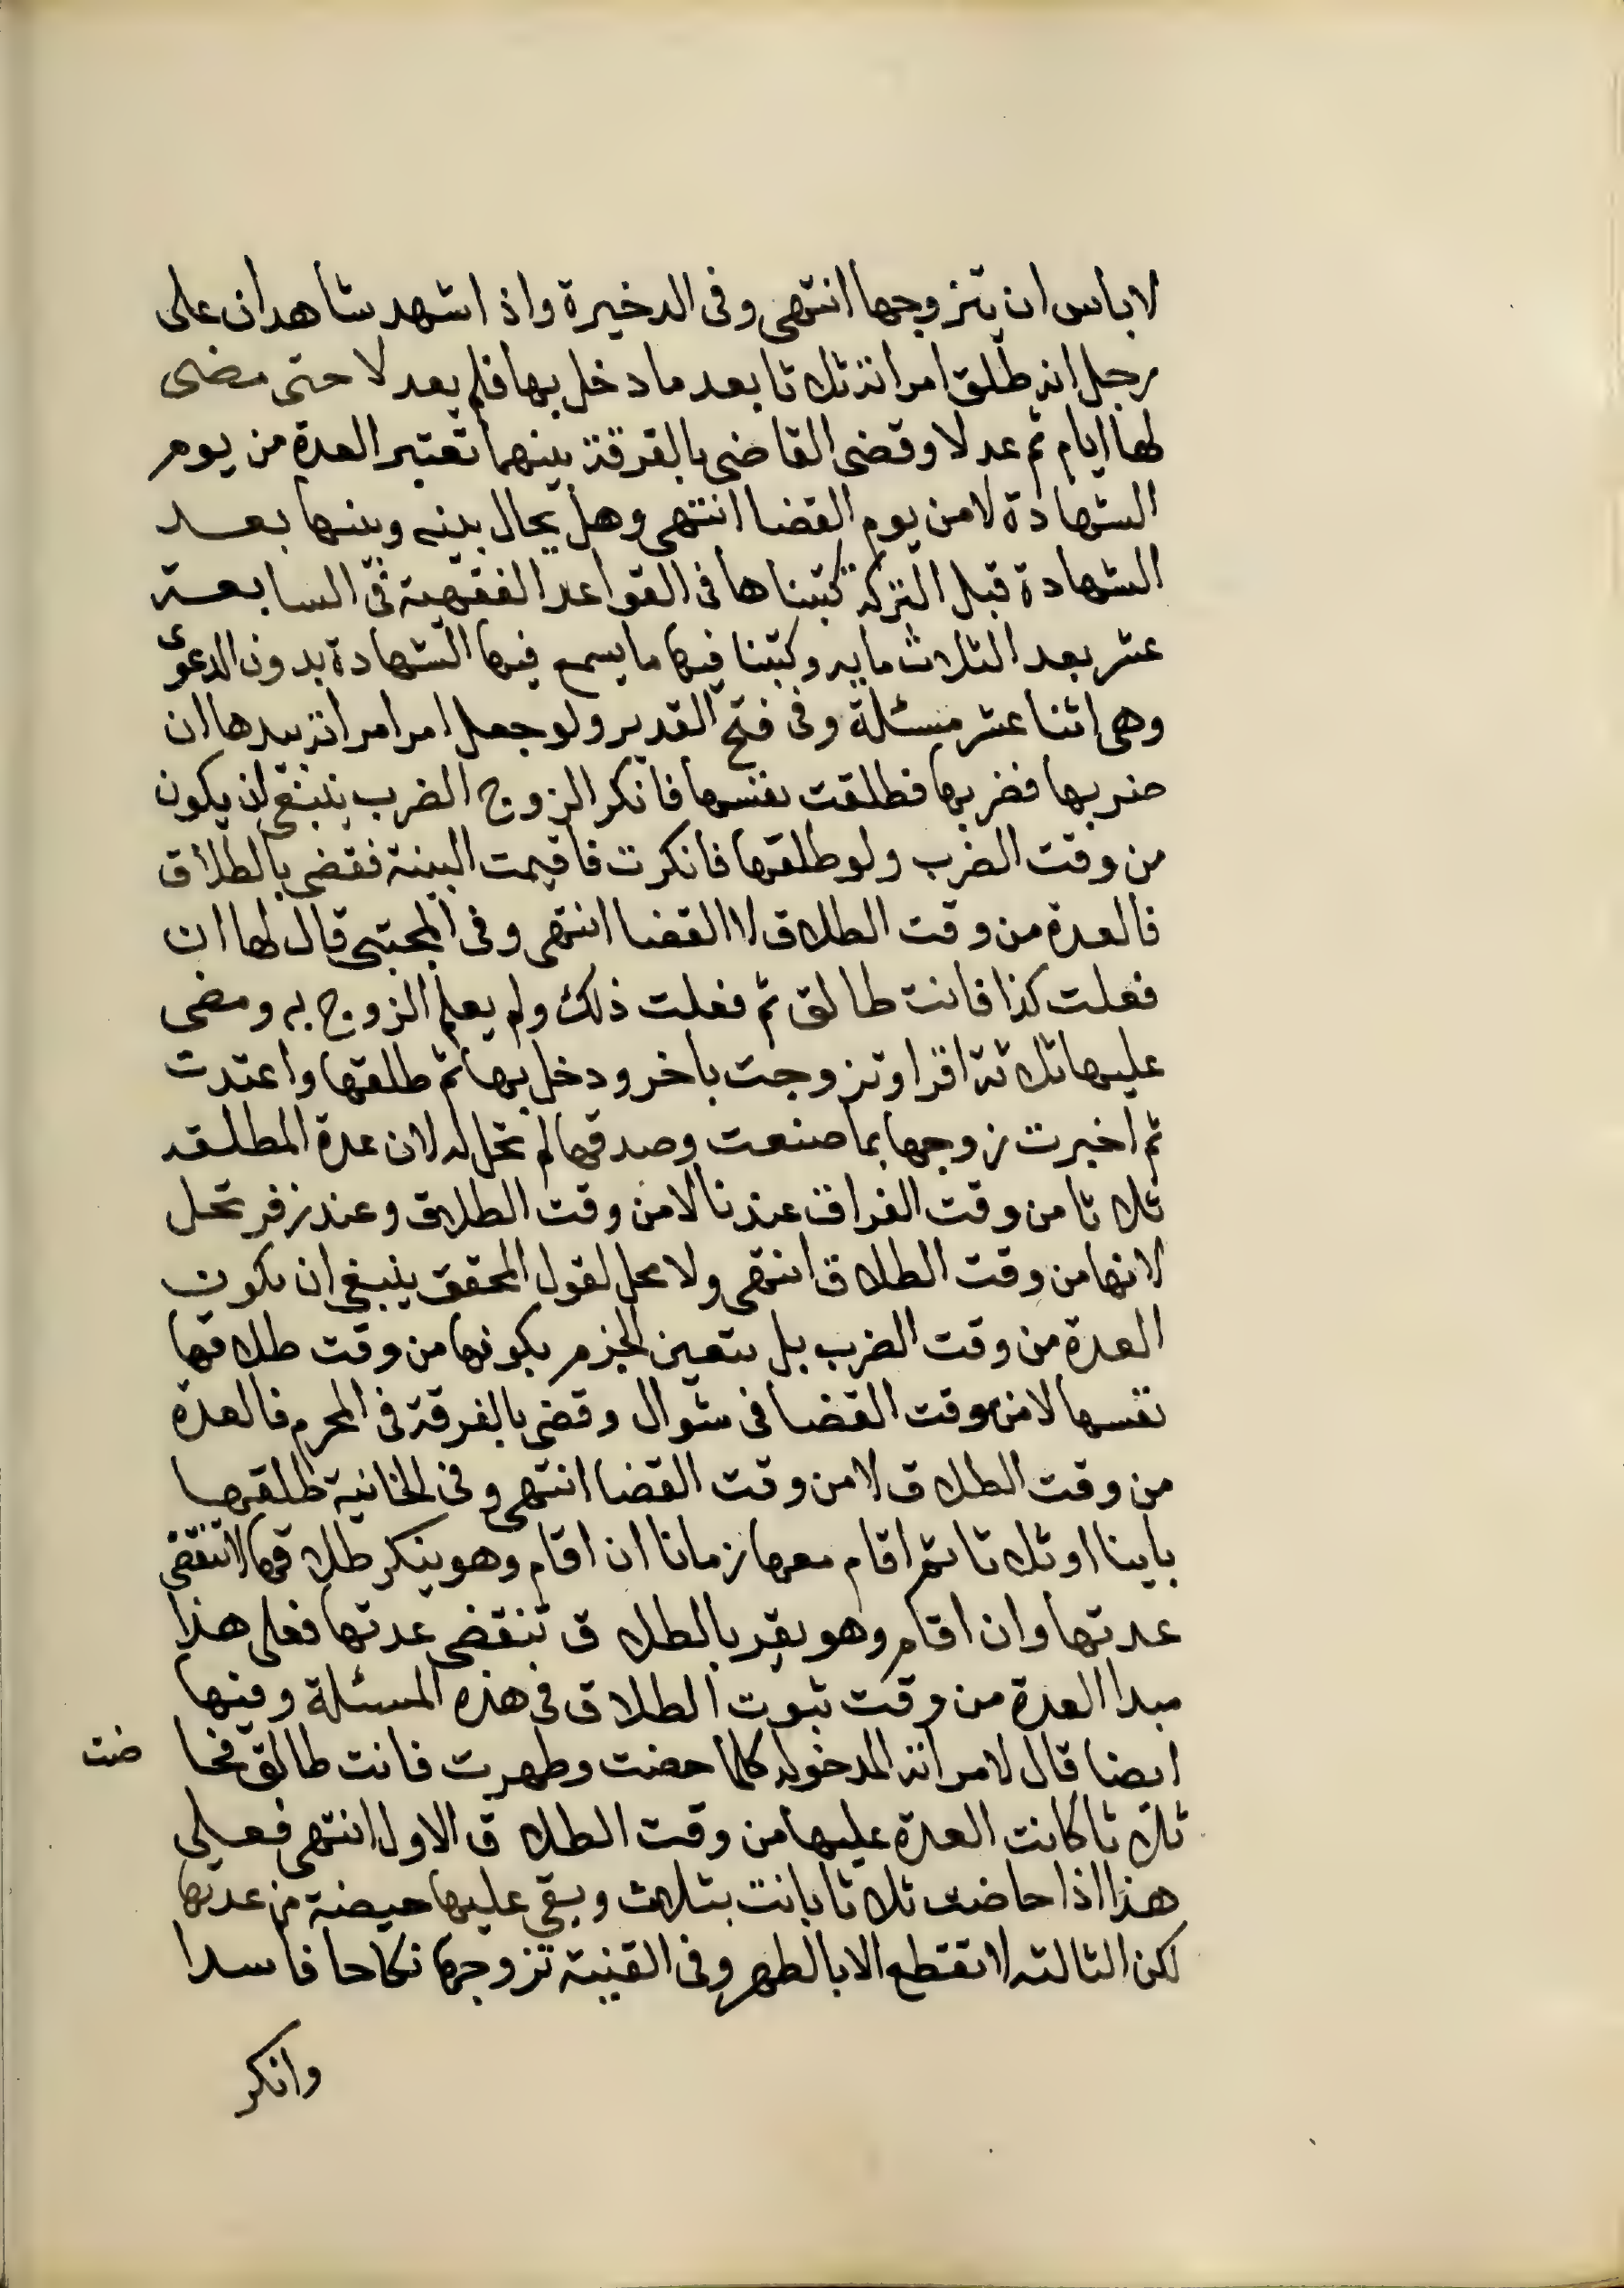 لا باس ان يتزوجها انتهى وفى الدخيرة واذ اشهد شاهدان على
رجل انه طلق امراته ثلاثا بعد ما دخل بها فلم يعدلا حتى مضى
لها ايام ثم عدلا وقضى القاضى بالفرقة بينهما تعتبر العدة من يوم
الشهادة لا من يوم القضا انتهى وهل يحال بينه وبينها بعد
الشهادة قبل التزكه كتبناها فى القواعد الفقهية فى السابعة
عشر بعد الثلاث مايه وكتبنا فيها ما يسمع فيها الشهادة بدون الدعوى
وهى اثنا عشر مسئلة وفى فتح القدير ولو جعل امر امراته بيدها ان
ضربها فضربها فطلقت نفسها فانكر الزوج الضرب ينبغى ان يكون
من وقت الضرب ولو طلقها فانكرت فاقيمت البينة فقضى بالطلاق
فالعدة من وقت الطلاق لا القضا انتهى وفى المجتبى قال لها ان
فعلت كذا فانت طالق ثم فعلت ذلك ولم يعلم الزوج به ومضى
عليها ثلاثة اقرا وتزوجت باخر ودخل بها ثم طلقها واعتدت
ثم اخبرت زوجها بما صنعت وصدقها لم تحل له لان عدة المطلقه
ثلاثا من وقت الفراق عندنا لا من وقت الطلاق وعند زفر تحل
لانها من وقت الطلاق انتهى ولا محل لقول المحقق ينبغى ان يكون
العدة من وقت الضرب بل يتعين الجزم بكونها من وقت طلاقها
نفسها لا من وقت القضا فى شوال وقضى بالفرقة فى المحرم فالعدة
من وقت الطلاق لا من وقت القضا انتهى وفى الخانية طلقها
باينا او ثلاثا ثم اقام معها زمانا ان اقام وهو ينكر طلاقها لا تنقضى
عدتها وان اقام وهو يقر بالطلاق تنقضى عدتها فعلى هذا
مبدا العدة من وقت ثبوت الطلاق فى هذه المسئلة وفيها
ايضا قال لامراته المدخوله كلما حضت وطهرت فانت طالق فحا ضت
ثلاثا كانت العدة عليها من وقت الطلاق الاول انتهى فعلى
هذا اذا حاضت ثلاثا بانت بثلاث وبقى عليها حيضة من عدتها
لكن الثالثه لا تقطع الا بالطهر وفى القنية تزوجها نكاحا فاسدا
وانكر